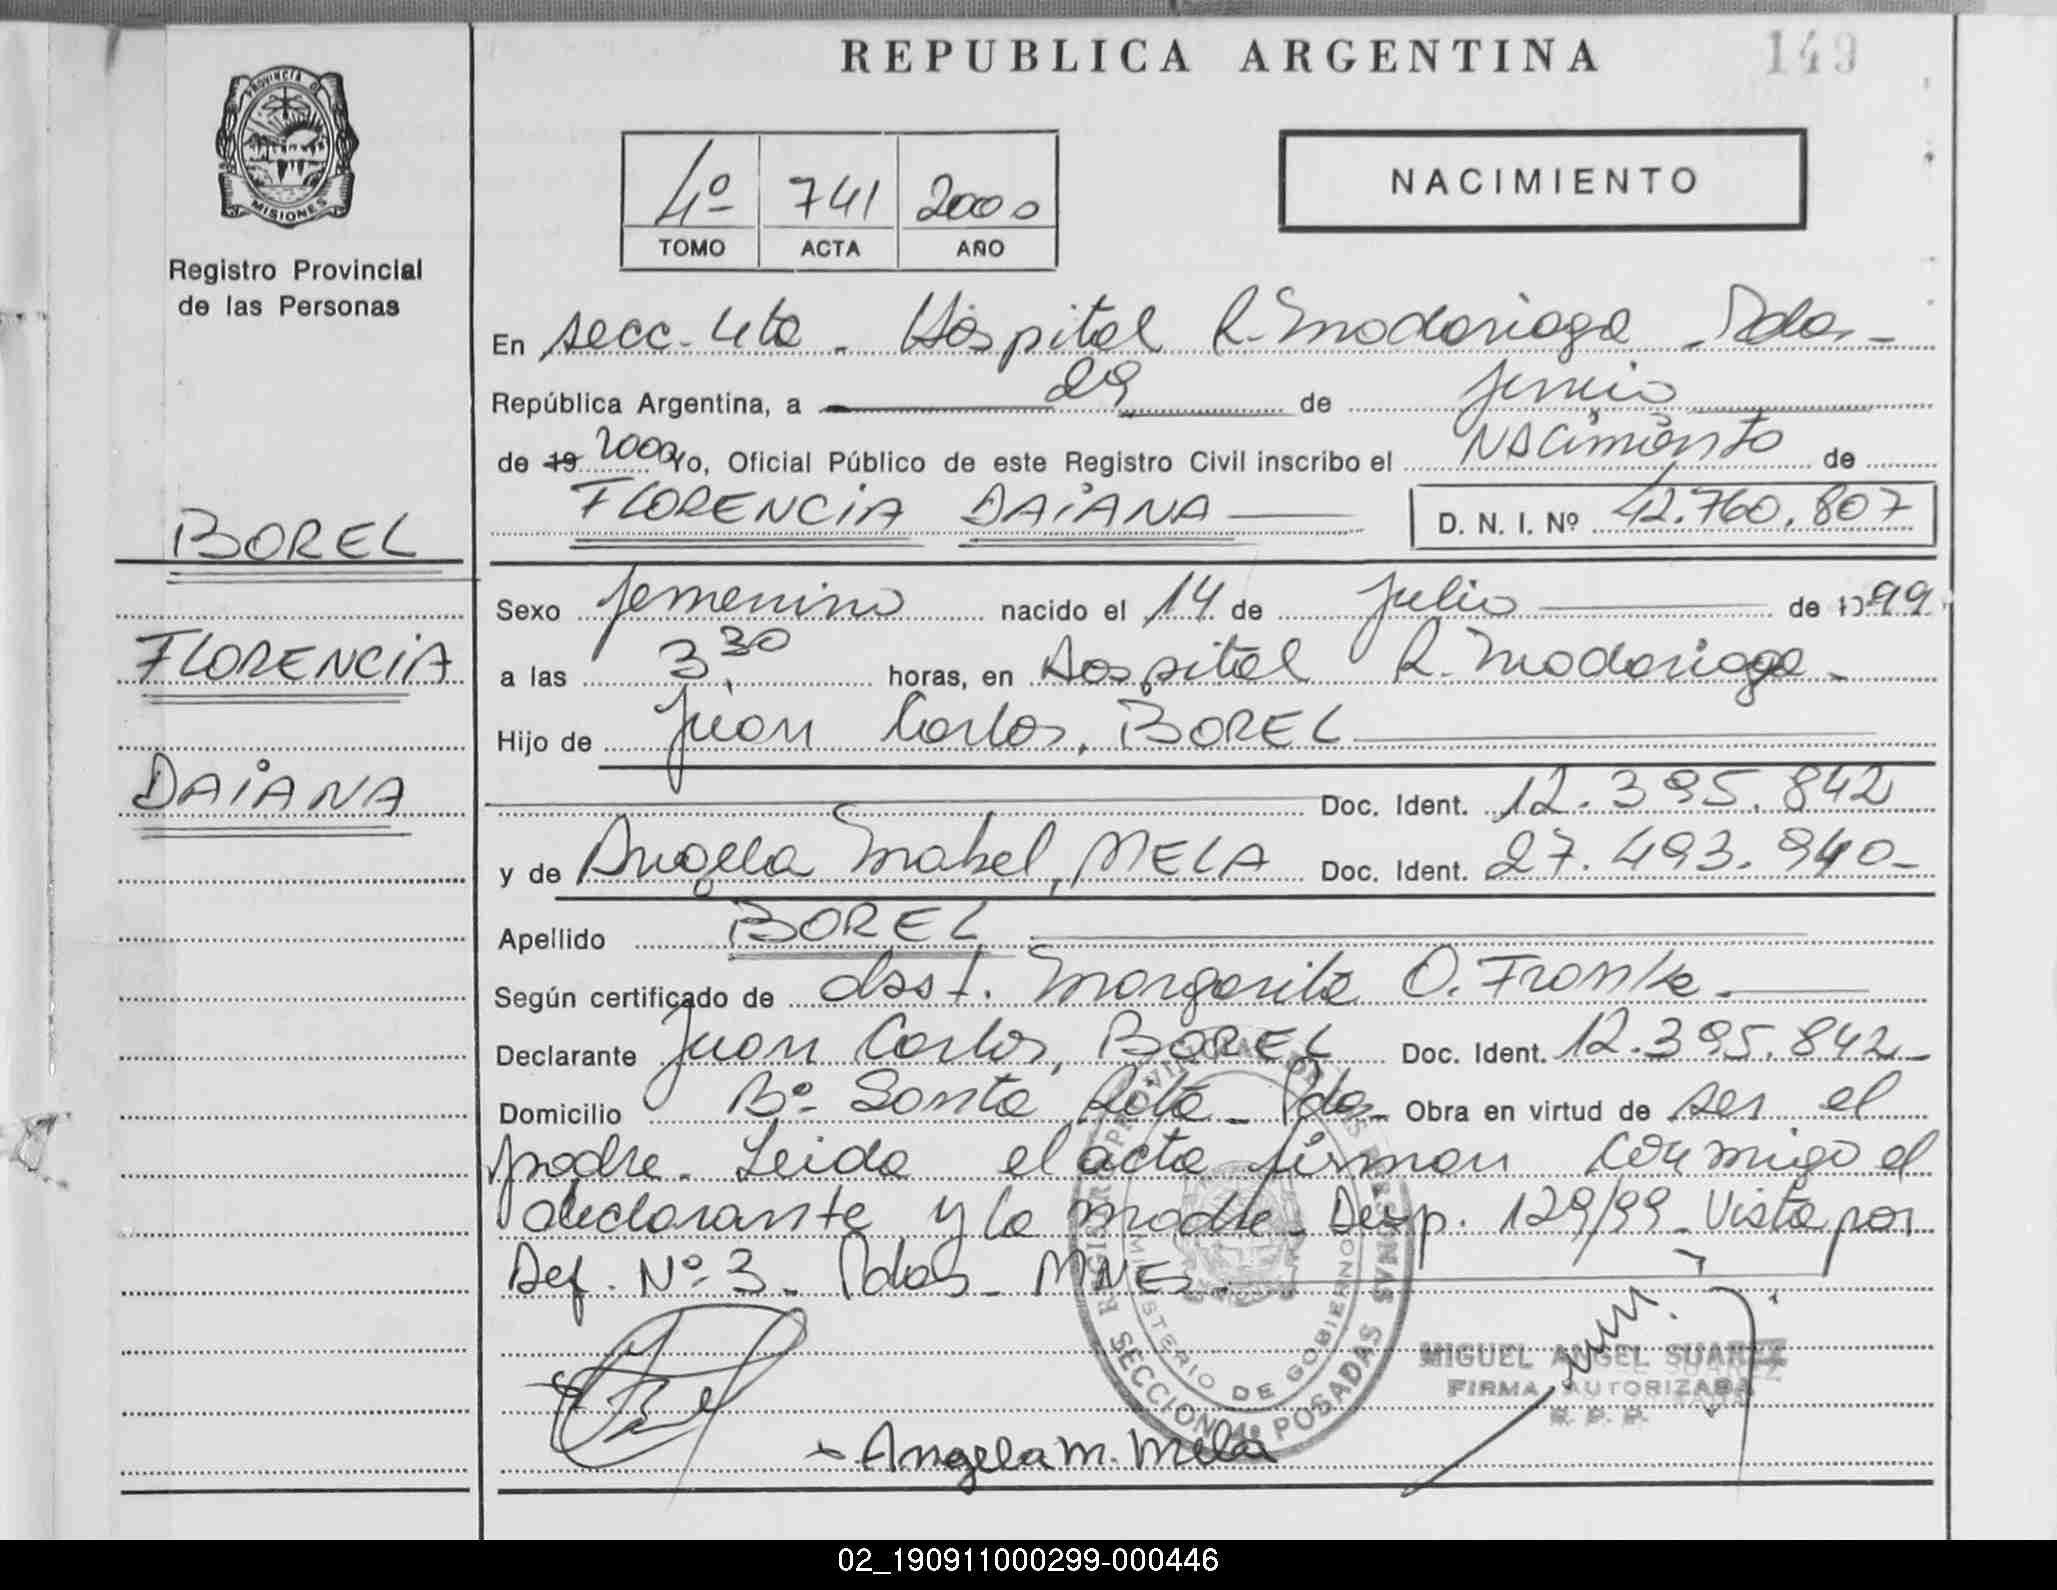 REPUBLICA ARGENTINA
149
PROVINCIA DE
MISIONES
Registro Provincial
de las Personas
4º 741 2000
TOMO ACTA AÑO
NACIMIENTO
En secc. 4ta - Hospital R. Madariaga - Pdas -
República Argentina, a 29 de junio
de 19 2000 Yo, Oficial Público de este Registro Civil inscribo el NACimiento de
FLORENCiA DAiANA D. N. I. Nº 42.760.807
BOREL
FLORENCiA
DAiANA
Sexo femenino nacido el 14 de julio de 1999
a las 3,30 horas, en Hospital R. Madariaga -
Hijo de Juan Carlos, BOREL
Doc. Ident. 12.395.842
y de Angela Mabel, MELA Doc. Ident. 27.493.940-
Apellido BOREL
Según certificado de obst. Margarita O. Franke.
Declarante Juan Carlos, BOREL Doc. Ident. 12.395.842-
Domicilio Bº- Santa Rita - Pdas- Obra en virtud de ser el
padre. Leida el acta firman conmigo el
declarante y la madre - Disp. 129/99 - Vista por
Def. Nº 3 - Pdas - MNES.
REGISTRO PROVINCIAL DE LAS PERSONAS
MINISTERIO DE GOBIERNO
SECCION 4º POSADAS
MIGUEL ANGEL SUAREZ
FIRMA AUTORIZADA
R. P. P.
Angela M. Mela
02_190911000299-000446